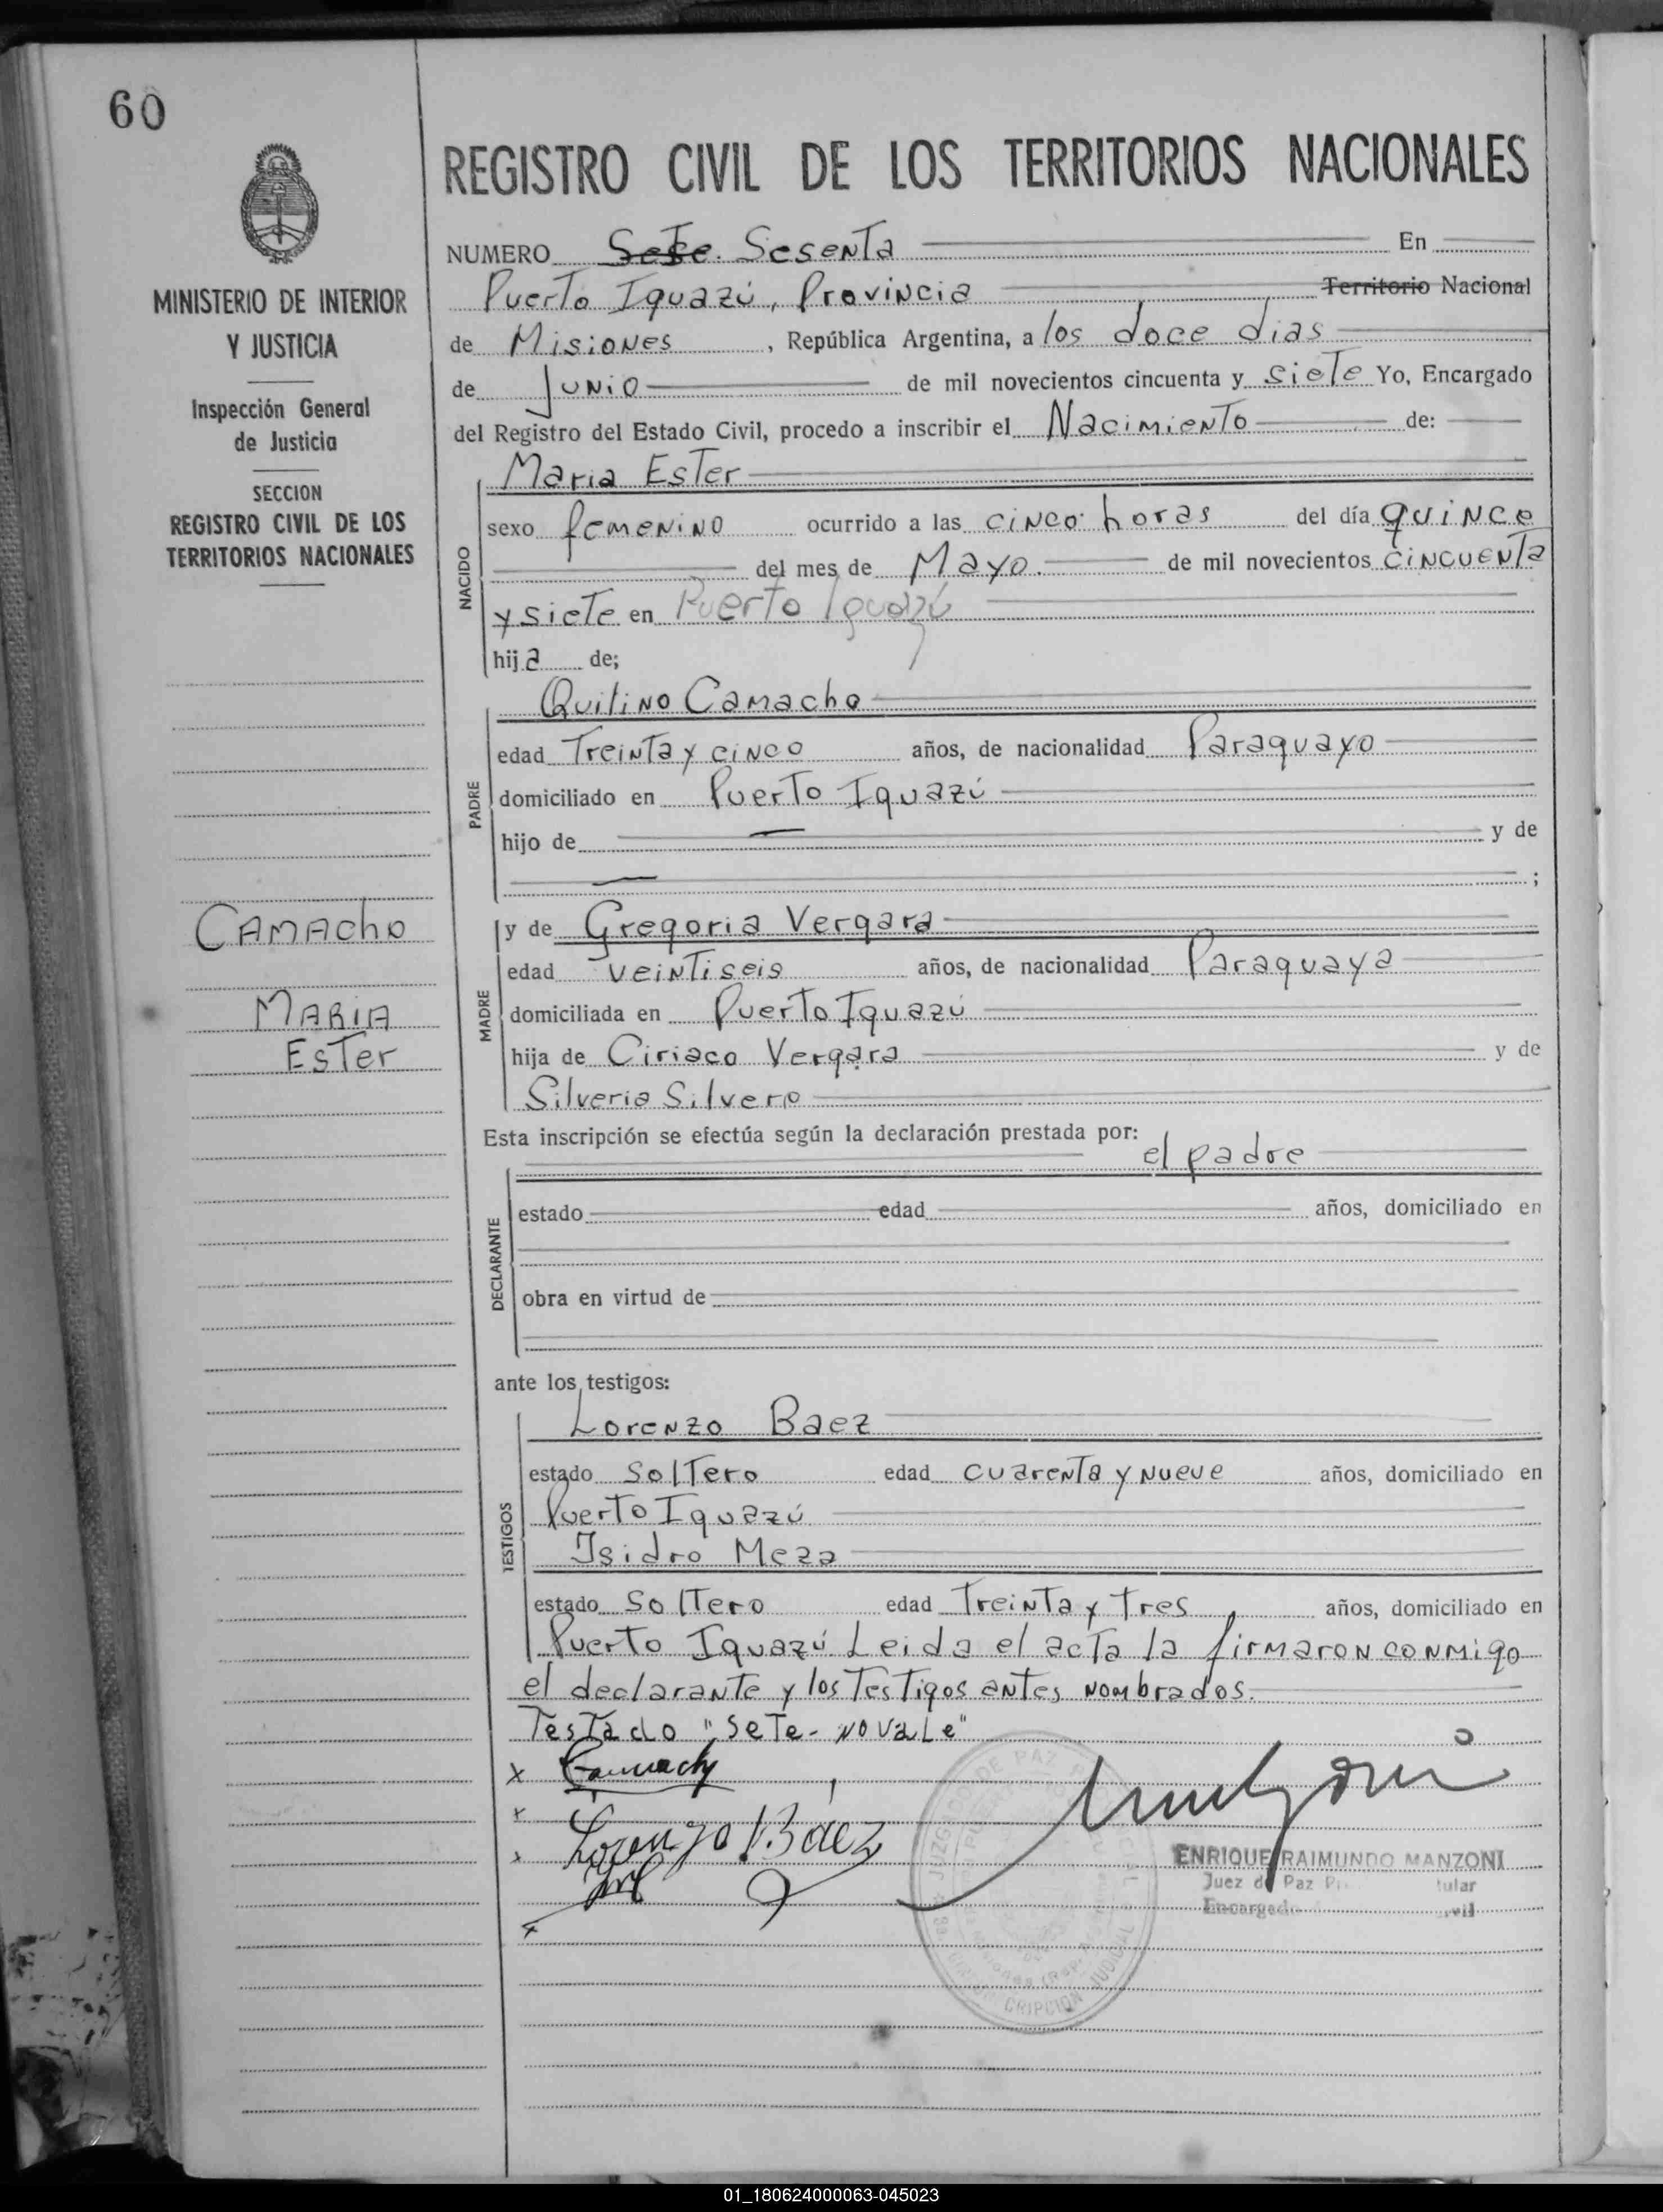 60
MINISTERIO DE INTERIOR
Y JUSTICIA
Inspección General
de Justicia
SECCION
REGISTRO CIVIL DE LOS
TERRITORIOS NACIONALES
CAMAchO
MARIA
EsTer
REGISTRO CIVIL DE LOS TERRITORIOS NACIONALES
NUMERO Sete. Sesenta En
Puerto Iguazú, Provincia Territorio Nacional
de Misiones, República Argentina, a los doce dias
de Junio de mil novecientos cincuenta y siete Yo, Encargado
del Registro del Estado Civil, procedo a inscribir el Nacimiento de:
Maria Ester
NACIDO
sexo femenino ocurrido a las cinco horas del día quince
del mes de Mayo. de mil novecientos cincuenta
y siete en Puerto Iguazú
hija de;
Quilino Camacho
PADRE
edad Treinta y cinco años, de nacionalidad Paraguayo
domiciliado en Puerto Iguazú
hijo de y de
;
y de Gregoria Vergara
MADRE
edad veintiseis años, de nacionalidad Paraguaya
domiciliada en Puerto Iguazú
hija de Ciriaco Vergara y de
Silveria Silvero
Esta inscripción se efectúa según la declaración prestada por:
el padre
DECLARANTE
estado edad años, domiciliado en
obra en virtud de
ante los testigos:
Lorenzo Baez
TESTIGOS
estado Soltero edad cuarenta y nueve años, domiciliado en
Puerto Iguazú
Isidro Meza
estado Soltero edad Treinta y Tres, años, domiciliado en
Puerto Iguazú Leida el acta la firmaron conmigo
el declarante y los Testigos antes nombrados.
Testado "Sete- no vale"
x Camacho
x
x Lorenzo Báez
x
JUZGADO DE PAZ
CRIPCION JUDICIAL
ENRIQUE RAIMUNDO MANZONI
Juez de Paz
Encargado
01_180624000063-045023